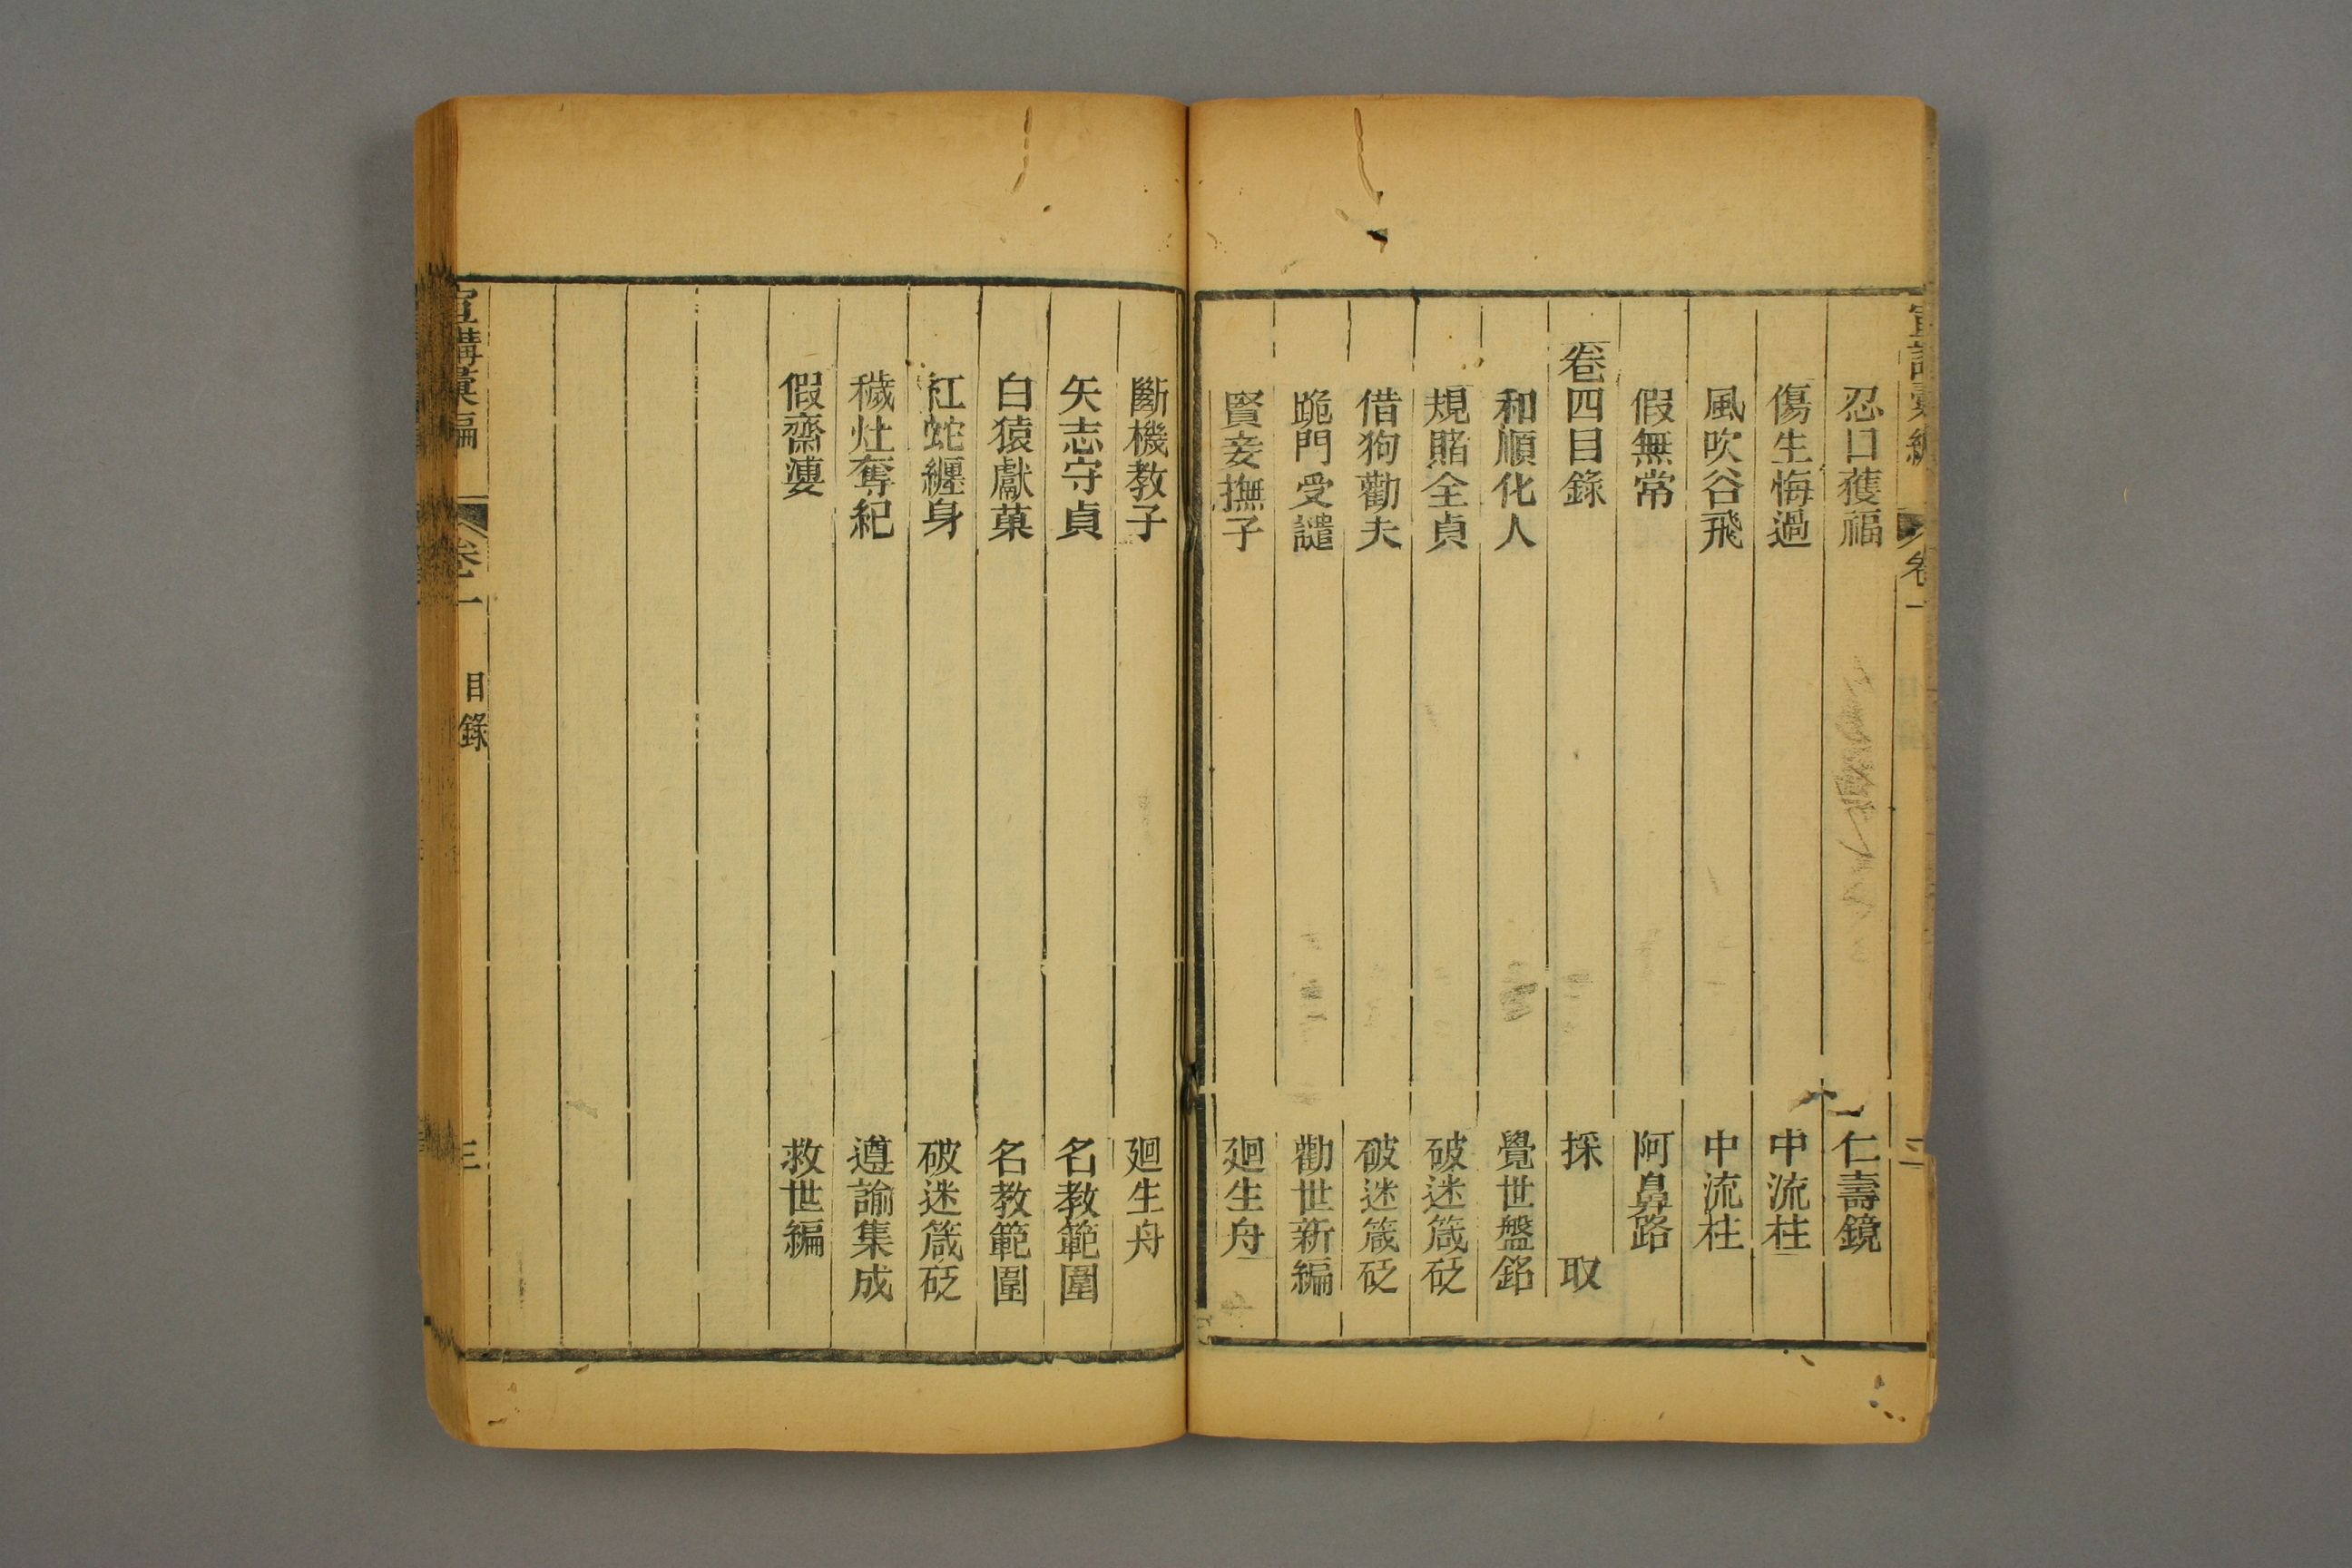 忍口獲福 仁壽鏡
傷生悔過 中流柱
風吹谷飛 中流柱
假無常 阿鼻路
卷四目錄 採取
和順化人 覺世盤銘
規賭全貞 破迷箴砭
借狗勸夫 破迷箴砭
跪門受譴 勸世新編
賢妾撫子 廻生舟
斷機教子 廻生舟
矢志守貞 名教範圍
白猿獻菓 名教範圍
紅蛇纏身 破迷箴砭
穢灶奪紀 遵諭集成
假齋 救世編
宣講彙編 卷一 目錄 三